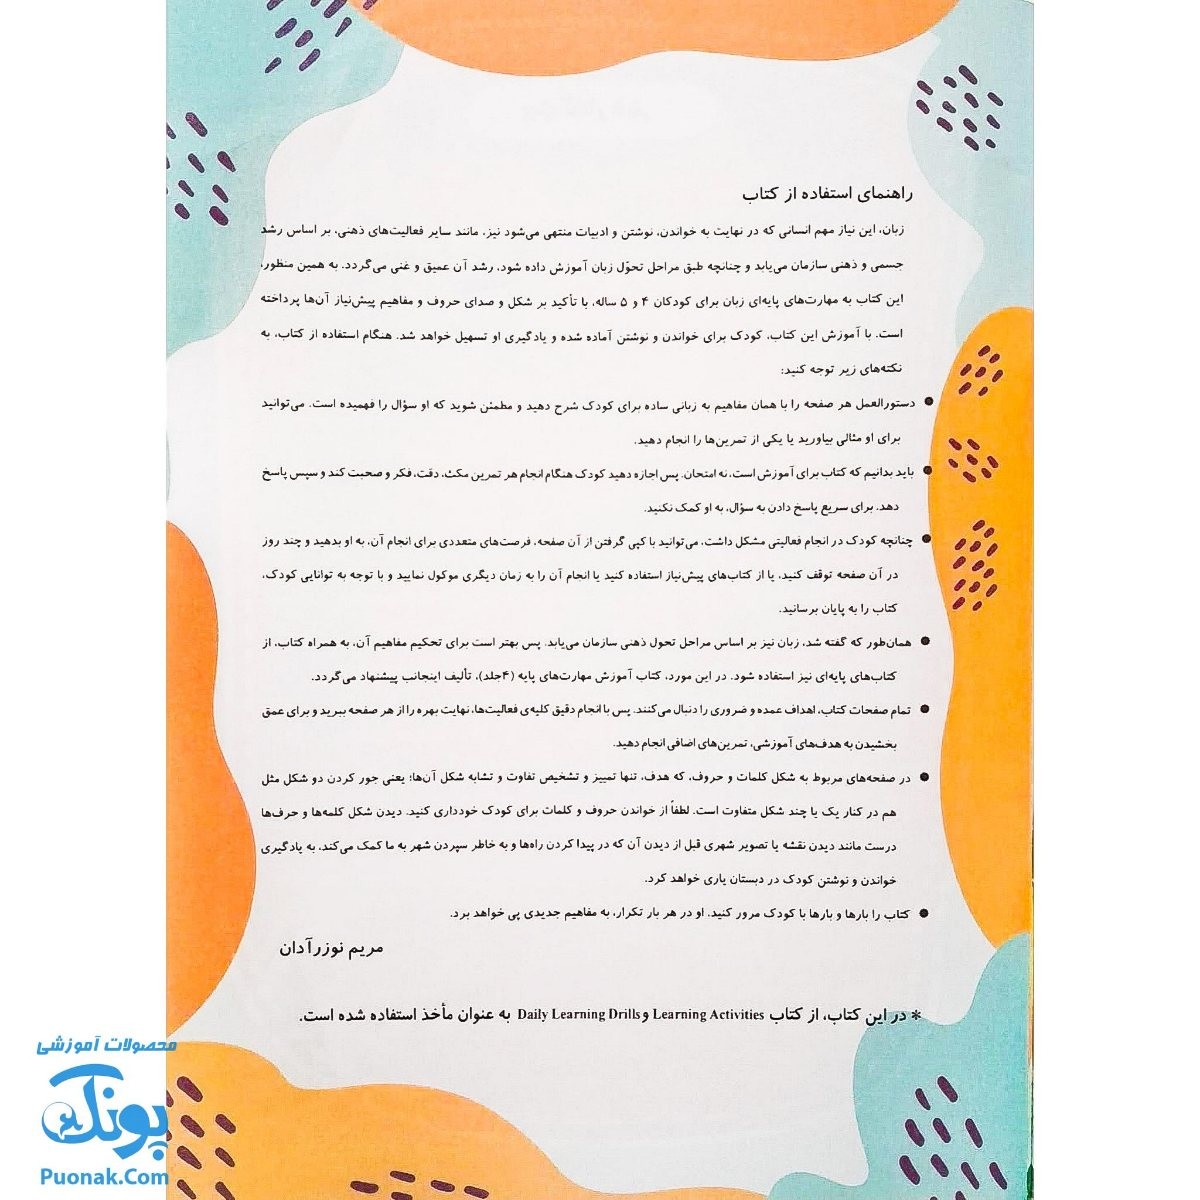 راهنمای استفاده از کتاب
زبان، این نیاز مهم انسانی که در نهایت به خواندن، نوشتن و ادبیات منتهی می‌شود نیز، مانند سایر فعالیت‌های ذهنی، بر اساس رشد
جسمی و ذهنی سازمان می‌یابد و چنانچه طبق مراحل تحوّل زبان آموزش داده شود، رشد آن عمیق و غنی می‌گردد. به همین منظور،
این کتاب به مهارت‌های پایه‌ای زبان برای کودکان ۴ و ۵ ساله، با تأکید بر شکل و صدای حروف و مفاهیم پیش‌نیاز آن‌ها پرداخته
است. با آموزش این کتاب، کودک برای خواندن و نوشتن آماده شده و یادگیری او تسهیل خواهد شد. هنگام استفاده از کتاب، به
نکته‌های زیر توجه کنید:
● دستورالعمل هر صفحه را با همان مفاهیم به زبانی ساده برای کودک شرح دهید و مطمئن شوید که او سؤال را فهمیده است. می‌توانید
برای او مثالی بیاورید یا یکی از تمرین‌ها را انجام دهید.
● باید بدانیم که کتاب برای آموزش است، نه امتحان. پس اجازه دهید کودک هنگام انجام هر تمرین مکث، دقت، فکر و صحبت کند و سپس پاسخ
دهد. برای سریع پاسخ دادن به سؤال، به او کمک نکنید.
● چنانچه کودک در انجام فعالیتی مشکل داشت، می‌توانید با کپی گرفتن از آن صفحه، فرصت‌های متعددی برای انجام آن، به او بدهید و چند روز
در آن صفحه توقف کنید، یا از کتاب‌های پیش‌نیاز استفاده کنید یا انجام آن را به زمان دیگری موکول نمایید و با توجه به توانایی کودک،
کتاب را به پایان برسانید.
● همان‌طور که گفته شد، زبان نیز بر اساس مراحل تحول ذهنی سازمان می‌یابد. پس بهتر است برای تحکیم مفاهیم آن، به همراه کتاب، از
کتاب‌های پایه‌ای نیز استفاده شود. در این مورد، کتاب آموزش مهارت‌های پایه (۴جلد)، تألیف اینجانب پیشنهاد می‌گردد.
● تمام صفحات کتاب، اهداف عمده و ضروری را دنبال می‌کنند. پس با انجام دقیق کلیه‌ی فعالیت‌ها، نهایت بهره را از هر صفحه ببرید و برای عمق
بخشیدن به هدف‌های آموزشی، تمرین‌های اضافی انجام دهید.
● در صفحه‌های مربوط به شکل کلمات و حروف، که هدف، تنها تمییز و تشخیص تفاوت و تشابه شکل آن‌ها؛ یعنی جور کردن دو شکل مثل
هم در کنار یک یا چند شکل متفاوت است. لطفاً از خواندن حروف و کلمات برای کودک خودداری کنید. دیدن شکل کلمه‌ها و حرف‌ها
درست مانند دیدن نقشه یا تصویر شهری قبل از دیدن آن که در پیدا کردن راه‌ها و به خاطر سپردن شهر به ما کمک می‌کند، به یادگیری
خواندن و نوشتن کودک در دبستان یاری خواهد کرد.
● کتاب را بارها و بارها با کودک مرور کنید. او در هر بار تکرار، به مفاهیم جدیدی پی خواهد برد.
مریم نوزرآدان
* در این کتاب، از کتاب Learning Activities و Daily Learning Drills به عنوان مأخذ استفاده شده است.
محصولات آموزشی
پونک
Puonak.Com